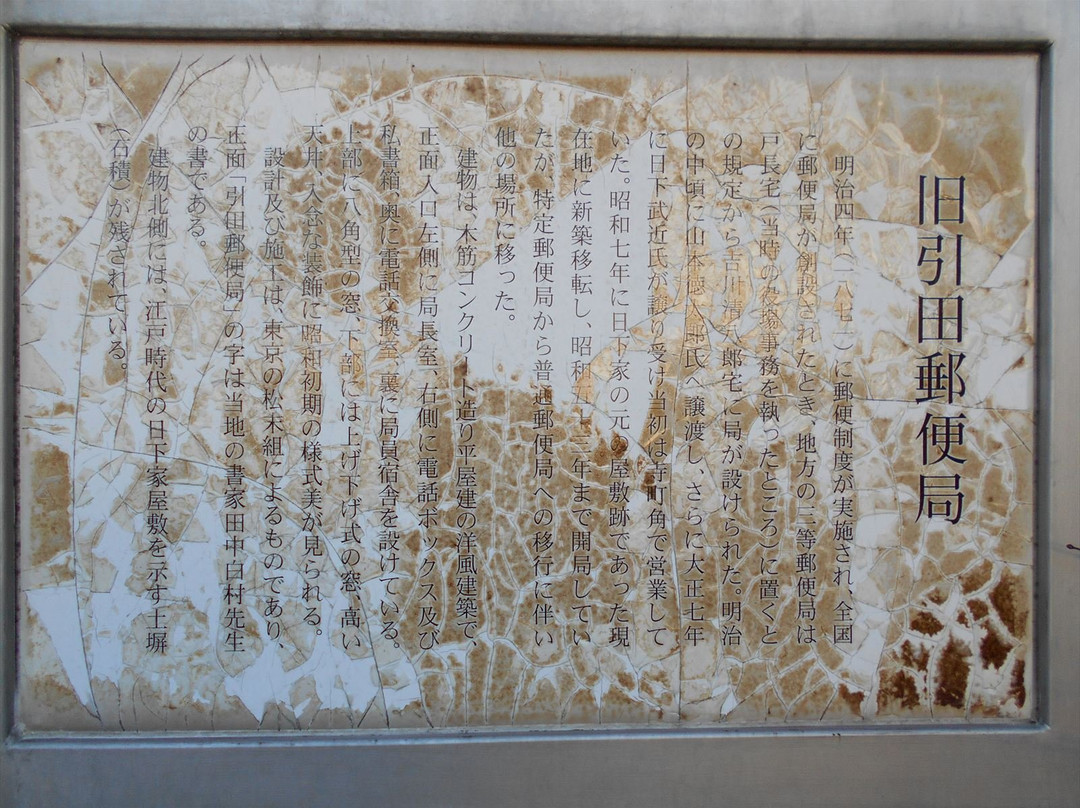 旧引田郵便局
明治四年（一八七一）に郵便制度が実施され、全国
に郵便局が創設されたとき、地方の三等郵便局は
戸長宅（当時の役場事務を執ったところ）に置くと
の規定から吉川清八郎宅に局が設けられた。明治
の中頃に山本 太郎氏へ譲渡し、さらに大正七年
に日下武近氏が譲り受け当初は寺町角で営業して
いた。昭和七年に日下家の元の屋敷跡であった現
在地に新築移転し、昭和 十三年まで開局してい
たが、特定郵便局から普通郵便局への移行に伴い
他の場所に移った。
建物は、木筋コンクリート造り平屋建の洋風建築で、
正面入口左側に局長室、右側に電話ボックス及び
私書箱、奥に電話交換室、裏に局員宿舎を設けている。
上部に八角型の窓、下部には上げ下げ式の窓、高い
天井、入念な装飾に昭和初期の様式美が見られる。
設計及び施工は、東京の松木組によるものであり、
正面「引田郵便局」の字は当地の書家田中白村先生
の書である。
建物北側には、江戸時代の日下家屋敷を示す土塀
（石積）が残されている。